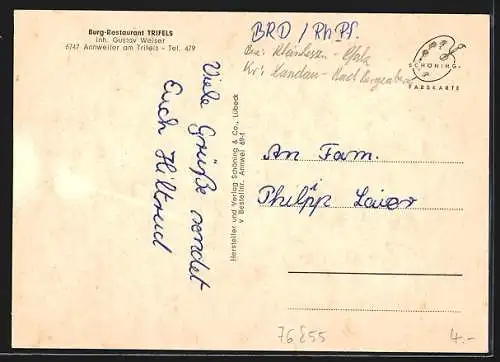 Burg-Restaurant TRIFELS
Inh. Gustav Weiser
6747 Annweiler am Trifels - Tel. 479
BRD / Rh. Pf.
Bez: Rheinhessen - Pfalz
Kr: Landau - Bad Bergzabern
SCHÖNING-
FARBKARTE
Viele Grüße sendet
Euch Hiltrud
Hersteller und Verlag Schöning & Co., Lübeck
v Bestellnr. Annwei 69-1
An Fam.
Philipp Laier
76855
4.-